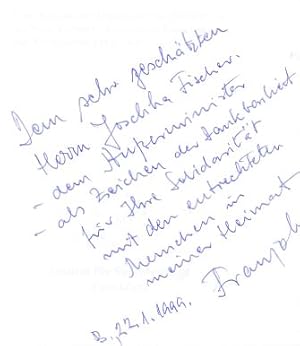 Dem sehr geschätzten
Herrn Joschka Fischer.
- dem Außenminister
- als Zeichen der Dankbarkeit
für Ihre Solidarität
mit den entrechteten
Menschen in
meiner Heimat
B, 22.1.1999.